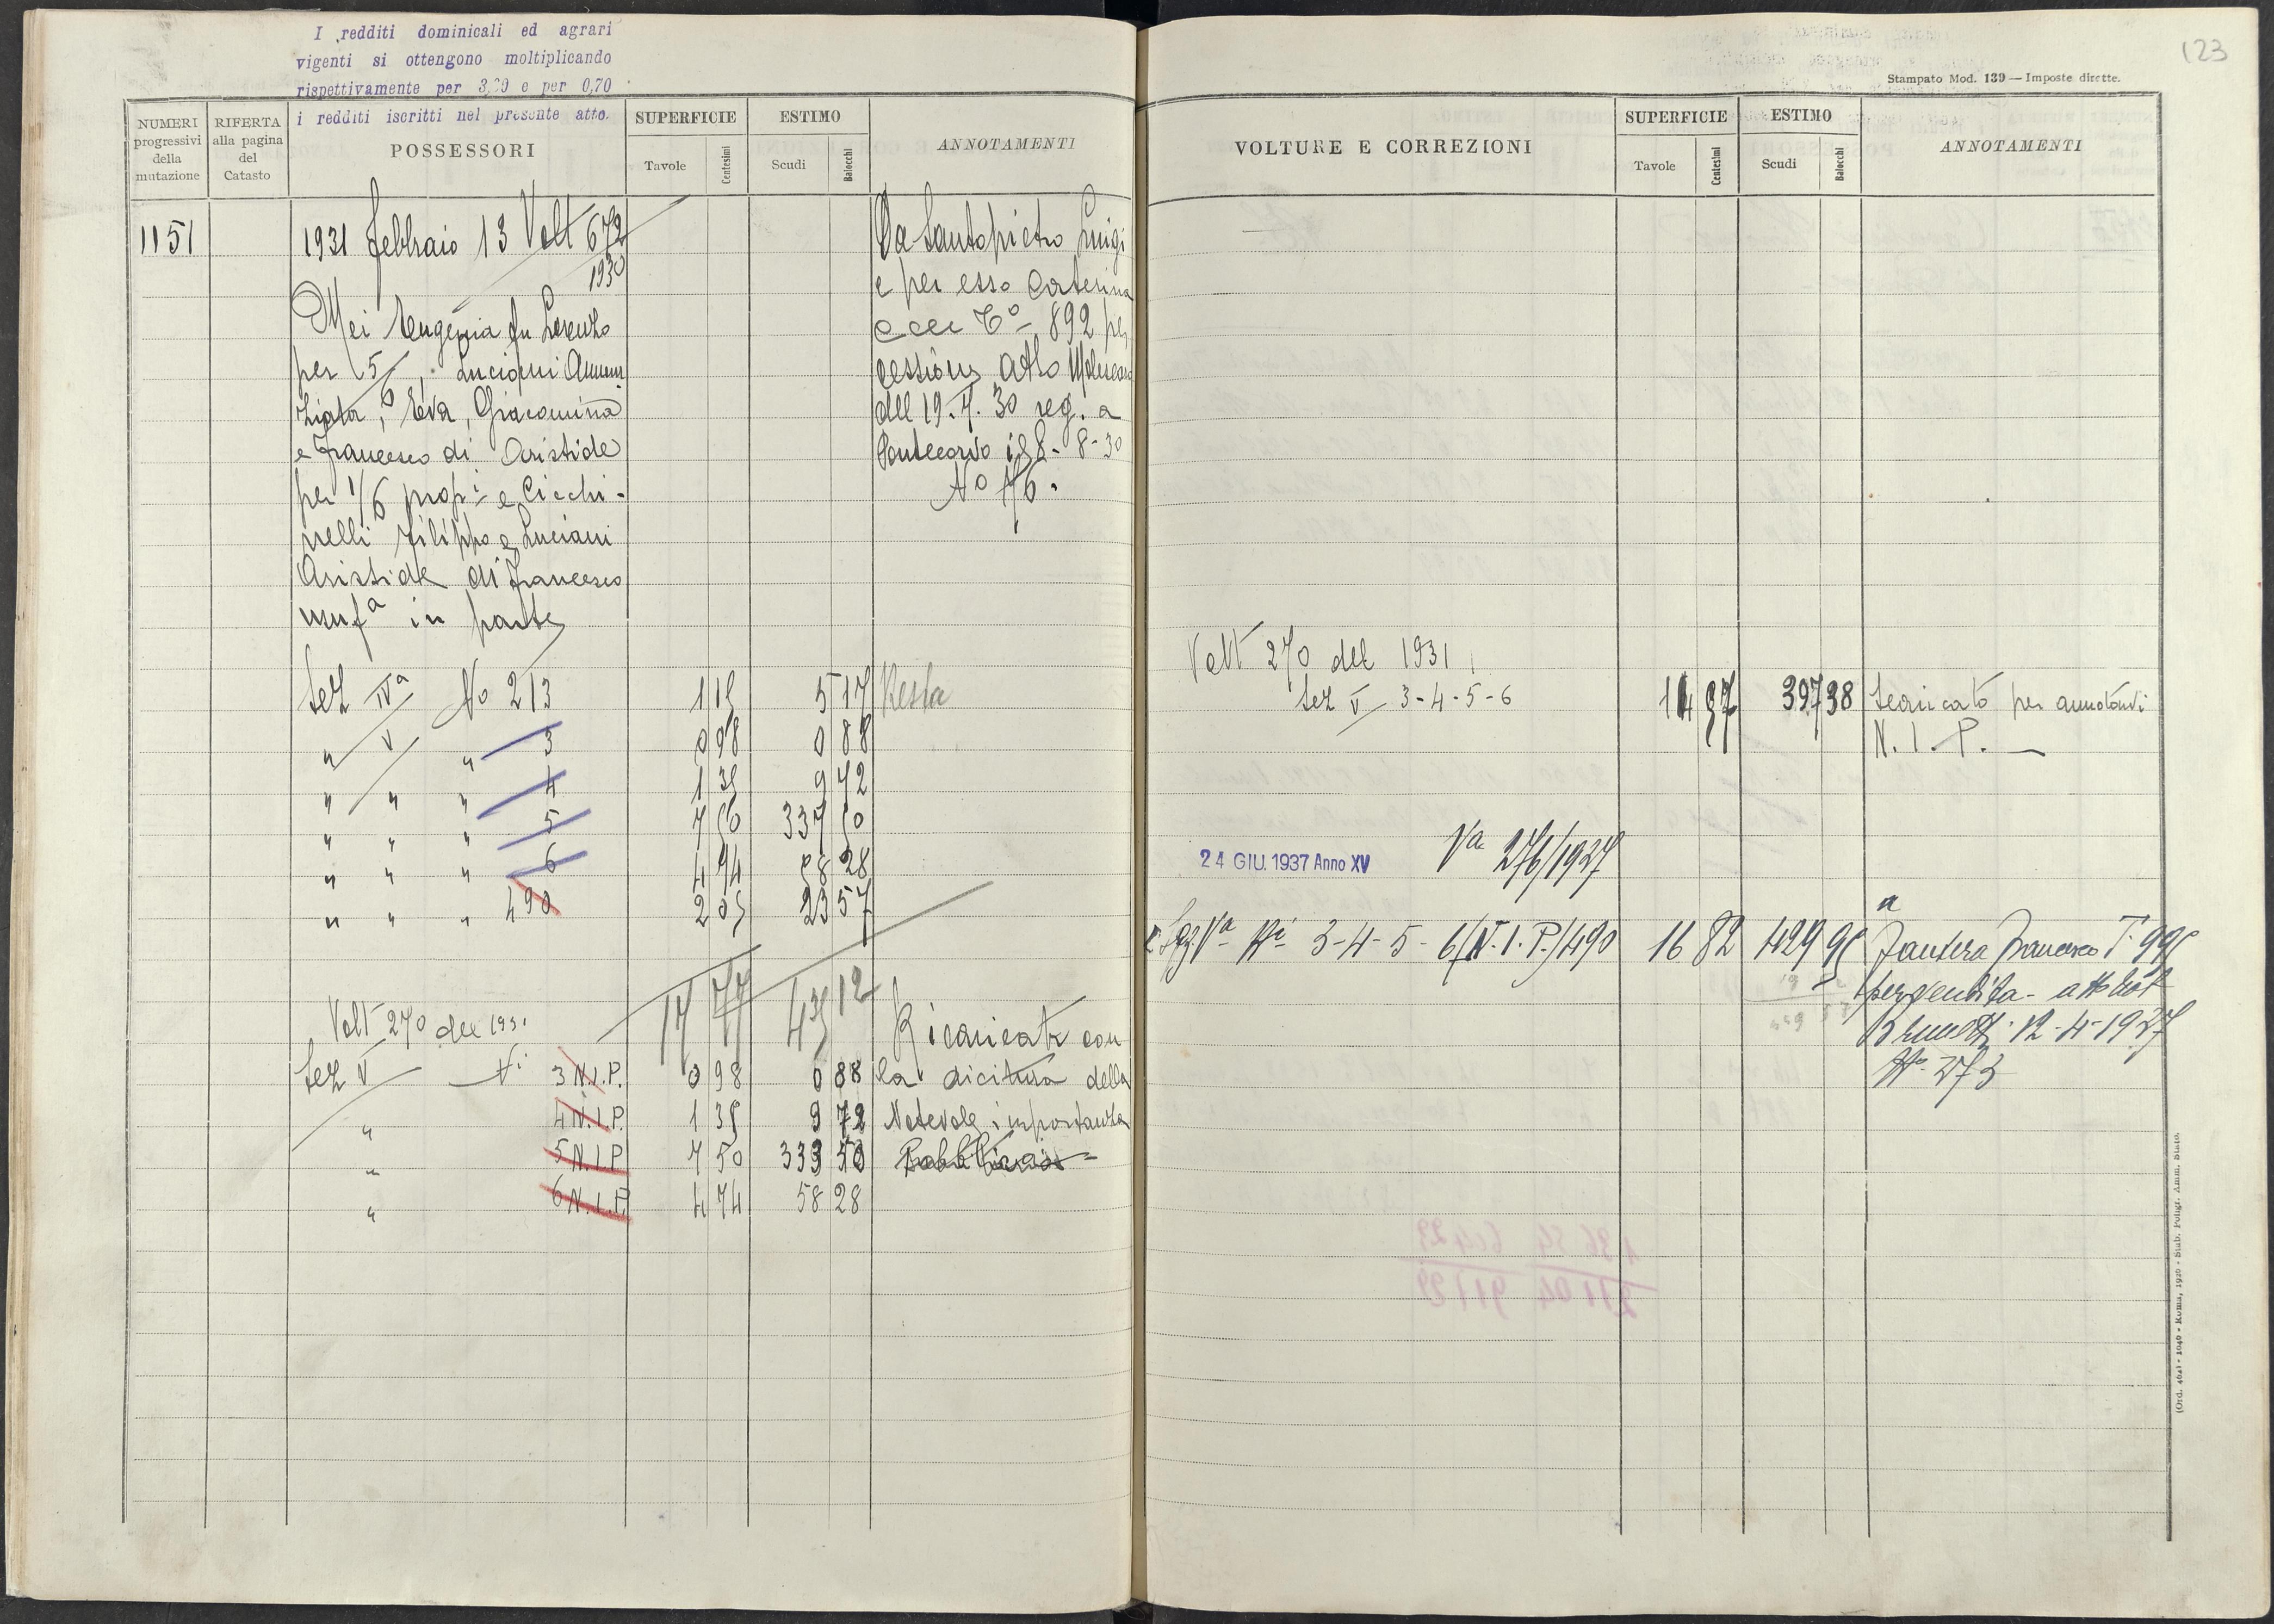 I redditi dominicali ed agrari
vigenti si ottengono moltiplicando
rispettivamente per 3,20 e per 0,70
i redditi iscritti nel presente atto.
NUMERI progressivi della mutazione
RIFERTA alla pagina del Catasto
POSSESSORI
SUPERFICIE
Tavole
Centesimi
ESTIMO
Scudi
Baiocchi
ANNOTAMENTI
1151
1931 febbraio 13 Volt 672
1930
Mei Eugenia fu Lorenzo
per 5/6, Luciani Annun
ziata, Eva, Giacomina
e Francesco di Aristide
per 1/6 propi e Cicchi-
nelli Filippo e Luciani
Aristide di Francesco
usufa in parte
Da Santopietro Luigi
e per esso Caterina
892 per
cessione atto
del 19.7.30 reg. a
Pontecorvo il 8-8-30
No 76.
Sez IVa No 213 1 15 5 17 Resta
" V " 3 0 98 0 88
" " " 4 1 35 9 72
" " " 5 7 50 337 50
" " " 6 4 74 58 28
" " " 490 2 05 23 57
17 77 435 12
Volt 270 del 1931
Ricaricati con
Sez V Ni 3 N.I.P. 0 98 0 88 la dicitura della
" 4 N.I.P. 1 35 9 72 Notevole importanza
" 5 N.I.P 7 50 333 50
" 6 N.I.P. 4 74 58 28
123
Stampato Mod. 139 — Imposte dirette.
VOLTURE E CORREZIONI
SUPERFICIE
Tavole
Centesimi
ESTIMO
Scudi
Baiocchi
ANNOTAMENTI
Volt 270 del 1931
Sez V 3-4-5-6 14 57 397 38 Scaricato per annotarvi
N.I.P. —
24 GIU. 1937 Anno XV Va 276/1937
Sez. Va Ni 3-4-5-6 (N.I.P.) 490 16 82 429 95
a
Francesco T. 995
per vendita - atto not
12-4-1937
No. 273
(Ord. 4041 - 1040 - Roma, 1926 - Stab. Poligr. Amm. Stato.